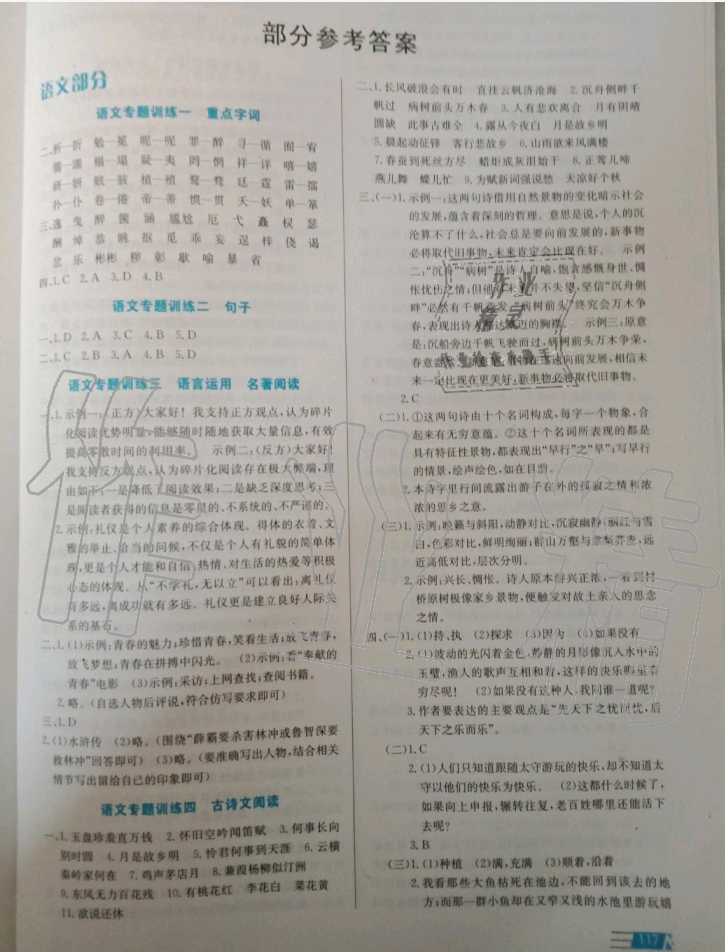 部分参考答案
语文部分
语文专题训练一 重点字词
二、折—折 勉—冕 昵—呢 罪—醉 寻—循 囿—宥
扑—仆 卷—倦 帝—蒂 惯—贯 天—妖 单—箪
三、逸 曳 醉 箧 涵 尴尬 厄 弋 矗 杈 瑟
酬 焯 恭 眺 抠 觅 乖 妄 逞 梓 侥 谒
岔 乐 彬彬 秽 彰 歇 喻 暴 省
四、1.C 2.A 3.D 4.B
语文专题训练二 句子
一、1.D 2.A 3.C 4.B 5.D
二、1.C 2.B 3.A 4.B 5.D
语文专题训练三 语言运用 名著阅读
一、1.示例一:(正方)大家好! 我支持正方观点,认为碎片
化阅读优势明显,能够随时随地获取大量信息,有效
提高零散时间的利用率。 示例二:(反方)大家好!
我支持反方观点,认为碎片化阅读存在极大弊端,理
由如下:一是降低了阅读效果;二是缺乏深度思考;三
是阅读者获得的信息是零星的、不系统的、不严谨的。
2.示例:礼仪是个人素养的综合体现。得体的衣着、文
雅的举止、恰当的问候,不仅是个人有礼貌的简单体
现,更是个人才能和自信、热情、对生活的热爱等积极
心态的体现。从“不学礼,无以立”可以看出;离礼仪
有多远,离成功就有多远。礼仪更是建立良好人际关
系的基石。
二、1.(1)示例:青春的魅力;珍惜青春,笑看生活;放飞青春,
放飞梦想;青春在拼搏中闪光。 (2)示例:看“奉献的
青春”电影 (3)示例:采访;上网查找;查阅书籍。
2.略。(自选人物后评说,符合仿写要求即可)
三、1.D
2.(1)水浒传 (2)略。(围绕“薛霸要杀害林冲或鲁智深要
救林冲”回答即可) (3)略。(要准确写出人物,结合相关
情节写出留给自己的印象即可)
语文专题训练四 古诗文阅读
一、1.玉盘珍羞直万钱 2.怀旧空吟闻笛赋 3.何事长向
别时圆 4.月是故乡明 5.怜君何事到天涯 6.云横
秦岭家何在 7.鸡声茅店月 8.蒹葭杨柳似汀洲
9.东风无力百花残 10.有桃花红 李花白 菜花黄
11.欲说还休
二、1.长风破浪会有时 直挂云帆济沧海 2.沉舟侧畔千
帆过 病树前头万木春 3.人有悲欢离合 月有阴晴
圆缺 此事古难全 4.露从今夜白 月是故乡明
5.晨起动征铎 客行悲故乡 6.山雨欲来风满楼
7.春蚕到死丝方尽 蜡炬成灰泪始干 8.正莺儿啼
燕儿舞 蝶儿忙 9.为赋新词强说愁 天凉好个秋
三、(一)1.示例一:这两句诗借用自然景物的变化暗示社会
的发展,蕴含着深刻的哲理。意思是说,个人的沉
沦算不了什么,社会总是要向前发展的,新事物
必将取代旧事物,未来肯定会比现在好。 示例
二:“沉舟”“病树”是诗人自喻,饱含感慨身世、惆
怅忧伤之情;但他又并不失望,坚信“沉舟侧
畔”必然会有千帆竞发,“病树前头”终究会万木争
春,表现出诗人豁达豪迈的胸襟。 示例三:原意
是:沉船旁边千帆飞驶而过,病树前头万木争荣,
春意盎然。向前发展,相信未来
一定比现在更美好,新事物必将取代旧事物。
2.C
(二)1.①这两句诗由十个名词构成,每字一个物象,合
起来有无穷意蕴。②这十个名词所表现的都是
具有特征性景物,都表现出“早行”之“早”;写早行
的情景,绘声绘色,如在目前。
2.本诗字里行间流露出游子在外的孤寂之情和浓
浓的思乡之意。
(三)1.示例:晚籁与斜阳,动静对比,沉寂幽静;丽江与雪
白,色彩对比,鲜明绚丽;群山万壑与棠梨荞麦,远
近高低对比,层次分明。
2.示例:兴长、惆怅。诗人原本游兴正浓,一看到村
桥原树极像家乡景物,便触发对故土亲人的思念
之情。
四、(一)1.(1)持、执 (2)探求 (3)因 (4)如果没有
2.(1)波动的光闪着金色,静静的月影像沉入水中的
玉璧,渔人的歌声互相和着,这样的快乐哪里会有
穷尽呢! (2)如果没有这种人,我同谁一道呢?
3.作者要表达的主要观点是“先天下之忧而忧,后
天下之乐而乐”。
(二)1.C
2.(1)人们只知道跟随太守游玩的快乐,却不知道太
守以他们的快乐为快乐。 (2)这都什么时候了,
如果向上申报,辗转往复,老百姓哪里还能活得下
去呢?
3.B
(三)1.(1)种植 (2)满,充满 (3)顺着,沿着
2.我看那些大鱼枯死在池边,不能回到广大的去的地
方;而小鱼却在又窄又浅的水池里游玩嬉
117
作业精灵